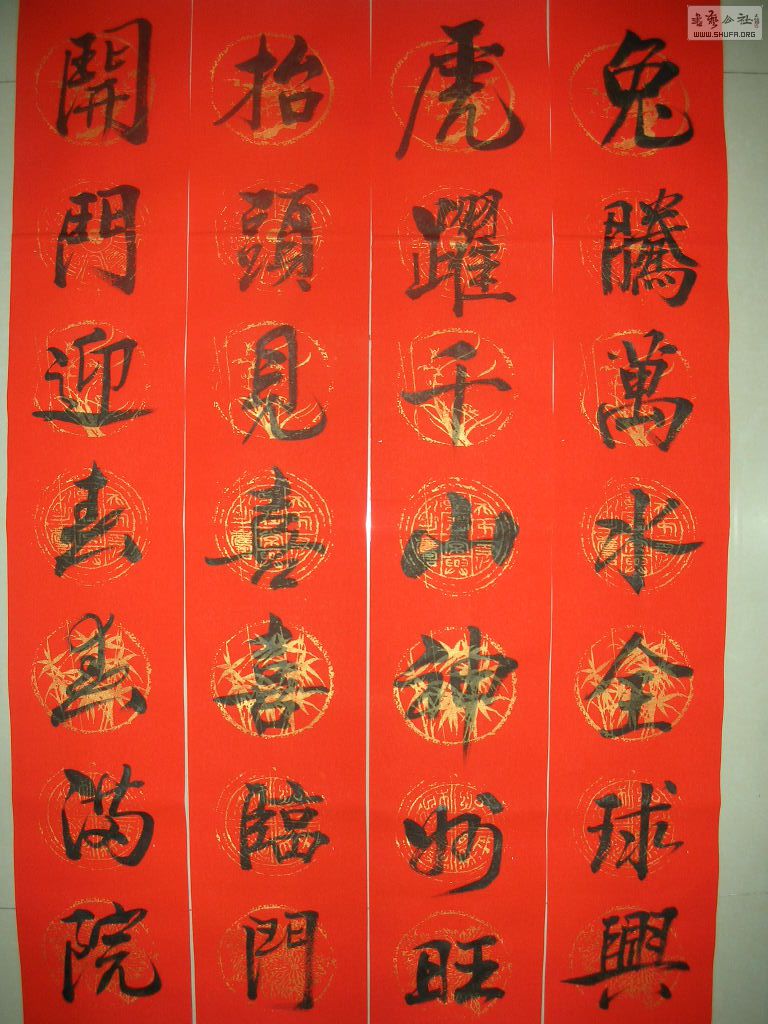 兔騰萬水全球興
虎躍千山神州旺
抬頭見喜喜臨門
開門迎春春滿院
書藝公社
WWW.SHUFA.ORG